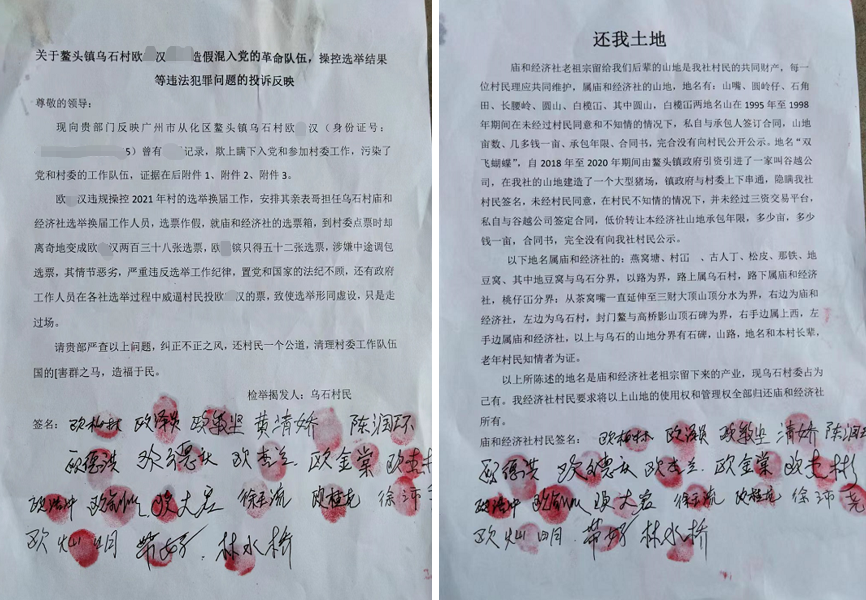 关于鳌头镇乌石村欧 汉 造假混入党的革命队伍，操控选举结果
等违法犯罪问题的投诉反映
尊敬的领导：
现向贵部门反映广州市从化区鳌头镇乌石村欧 汉（身份证号：
5）曾有 记录，欺上瞒下入党和参加村委工作，污染了
党和村委的工作队伍，证据在后附件 1、附件 2、附件 3。
欧 汉违规操控 2021 年村的选举换届工作，安排其亲表哥担任乌石村庙和
经济社选举换届工作人员，选票作假，就庙和经济社的选票箱，到村委点票时却
离奇地变成欧 汉两百三十八张选票，欧 镔只得五十二张选票，涉嫌中途调包
选票，其情节恶劣，严重违反选举工作纪律，置党和国家的法纪不顾，还有政府
工作人员在各社选举过程中威逼村民投欧 汉的票，致使选举形同虚设，只是走
过场。
请贵部严查以上问题，纠正不正之风，还村民一个公道，清理村委工作队伍
国的[害群之马，造福于民。
检举揭发人：乌石村民
签名： 欧柏林 欧泽员 欧敏坚 黄清娇 陈润环
欧德洪 欧德秋 欧杰兰 欧金棠
欧大宏 徐玉流 欧桂尧 徐沛
欧灿明 带好 林水桥
还我土地
庙和经济社老祖宗留给我们后辈的山地是我社村民的共同财产，每一
位村民理应共同维护，属庙和经济社的山地，地名有：山嘴、圆岭仔、石角
田、长腰岭、圆山、白榄㘭、其中圆山，白榄㘭两地名山在 1995 年至 1998
年期间在未经过村民同意和不知情的情况下，私自与承包人签订合同，山地
亩数、几多钱一亩、承包年限、合同书，完合没有向村民公开公示。地名“双
飞蝴蝶”，自 2018 年至 2020 年期间由鳌头镇政府引资引进了一家叫谷越公
司，在我社的山地建造了一个大型猪场，镇政府与村委上下串通，隐瞒我社
村民签名，未经村民同意，在村民不知情的情况下，并未经过三资交易平台，
私自与谷越公司签定合同，低价转让本经济社山地承包年限，多少亩，多少
钱一亩，合同书，完全没有向我社村民公示。
以下地名属庙和经济社的：燕窝塘、村㘭 、古人丁、松皮、那铁、地
豆窝、其中地豆窝与乌石分界，以路为界，路上属乌石村，路下属庙和经济
社，桃仔㘭分界；从茶窝嘴一直延伸至三财大顶山顶分水为界，右边为庙和
经济社，左边为乌石村，封门鳌与高桥影山顶石碑为界，右手边属上西，左
手边属庙和经济社，以上与乌石的山地分界有石碑，山路，地名和本村长辈，
老年村民知情者为证。
以上所陈述的地名是庙和经济社老祖宗留下来的产业，现乌石村委占为
己有。我经济社村民要求将以上山地的使用权和管理权全部归还庙和经济社
所有。
庙和经济社村民签名： 欧柏林 欧泽员 欧敏坚 清娇 陈润
欧德洪 欧德秋 欧杰兰 欧金棠 欧志彬
欧大宏 徐玉流 欧桂尧 徐沛尧
欧灿明 带好 林水桥